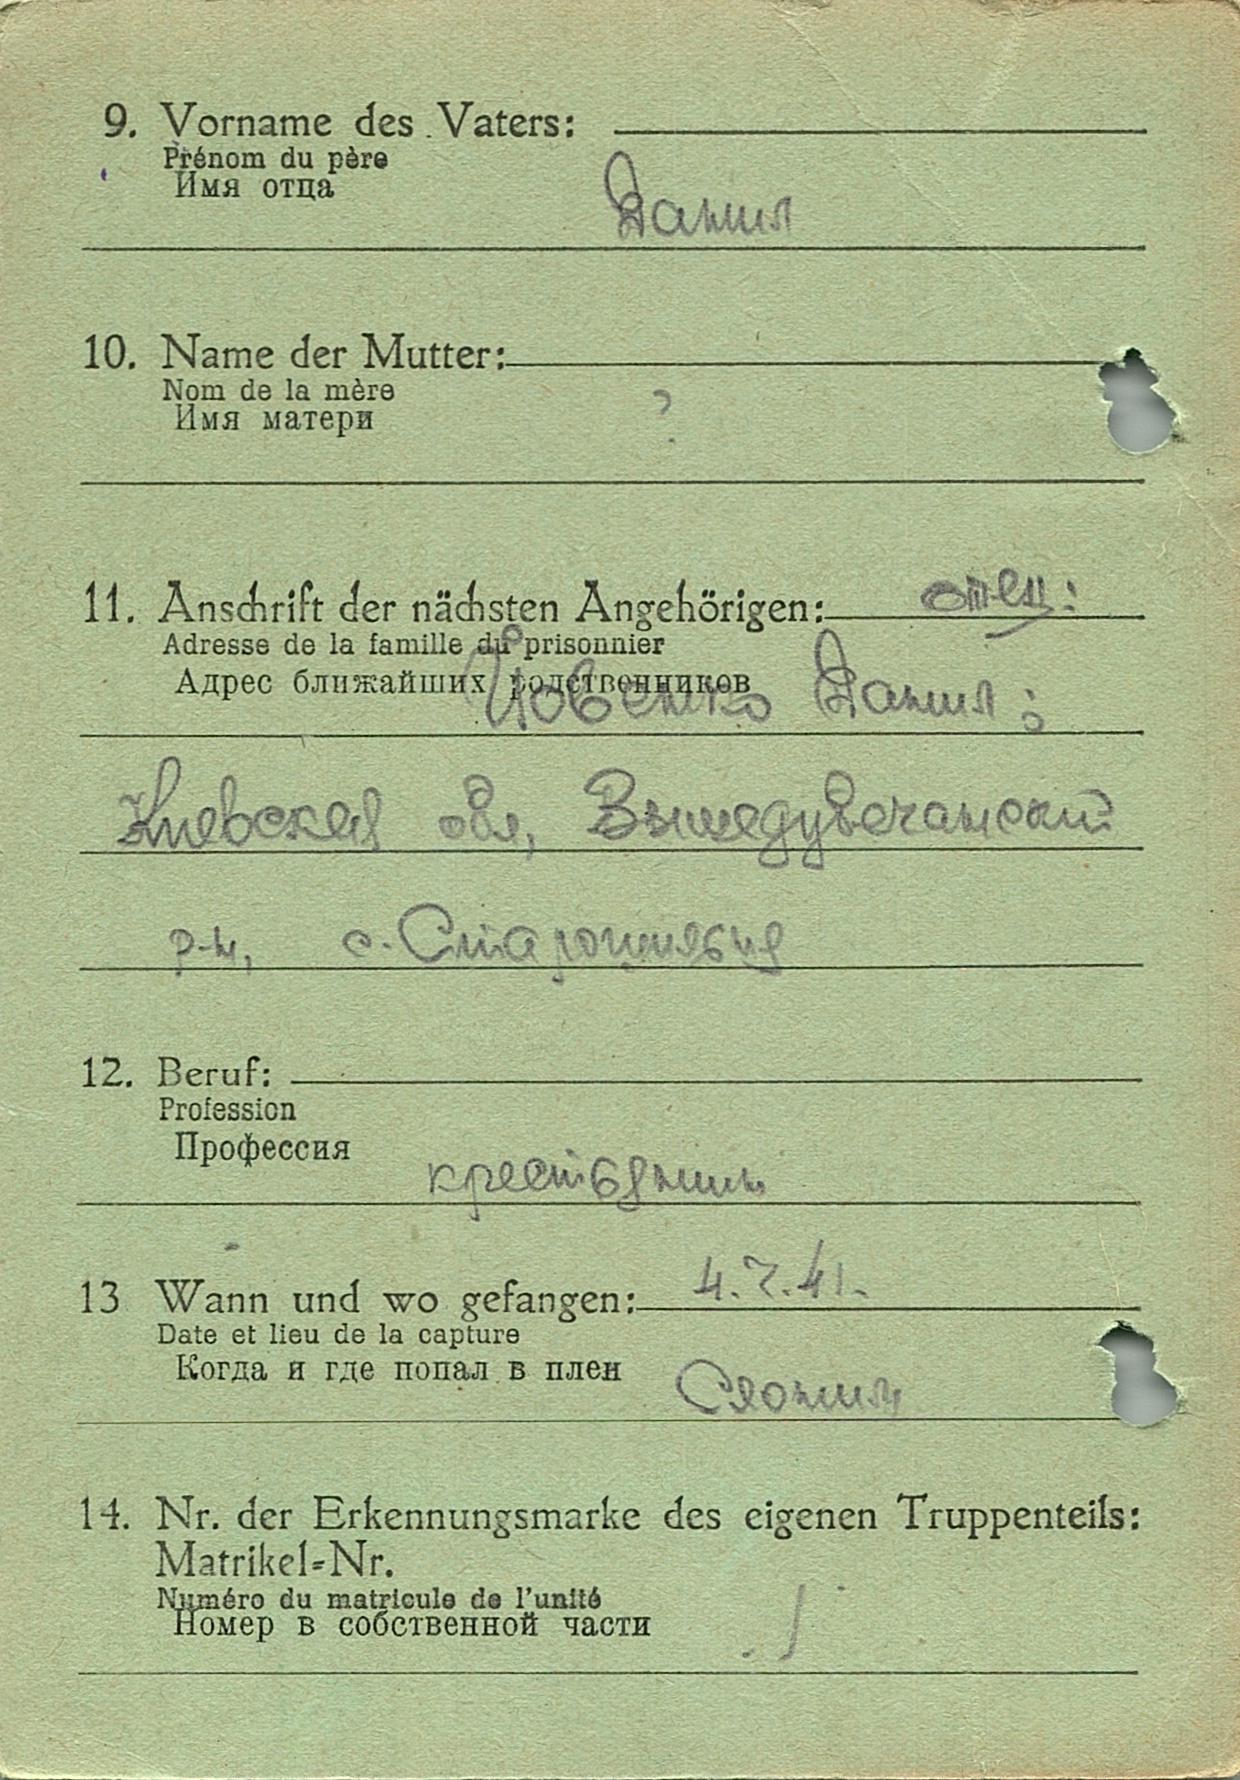 9. Vorname des Vaters:
Prénom du père
Имя отца
Данил
10. Name der Mutter:
Nom de la mère
Имя матери
?
11. Anschrift der nächsten Angehörigen: отец:
Adresse de la famille du prisonnier
Адрес ближайших родственников
Данил:
Киевская обл,
р-н, с.
12. Beruf:
Profession
Профессия
крестьянин
13 Wann und wo gefangen: 4.7.41.
Date et lieu de la capture
Когда и где попал в плен
Слоним
14. Nr. der Erkennungsmarke des eigenen Truppenteils:
Matrikel=Nr.
Numéro du matricule de l'unité
Номер в собственной части